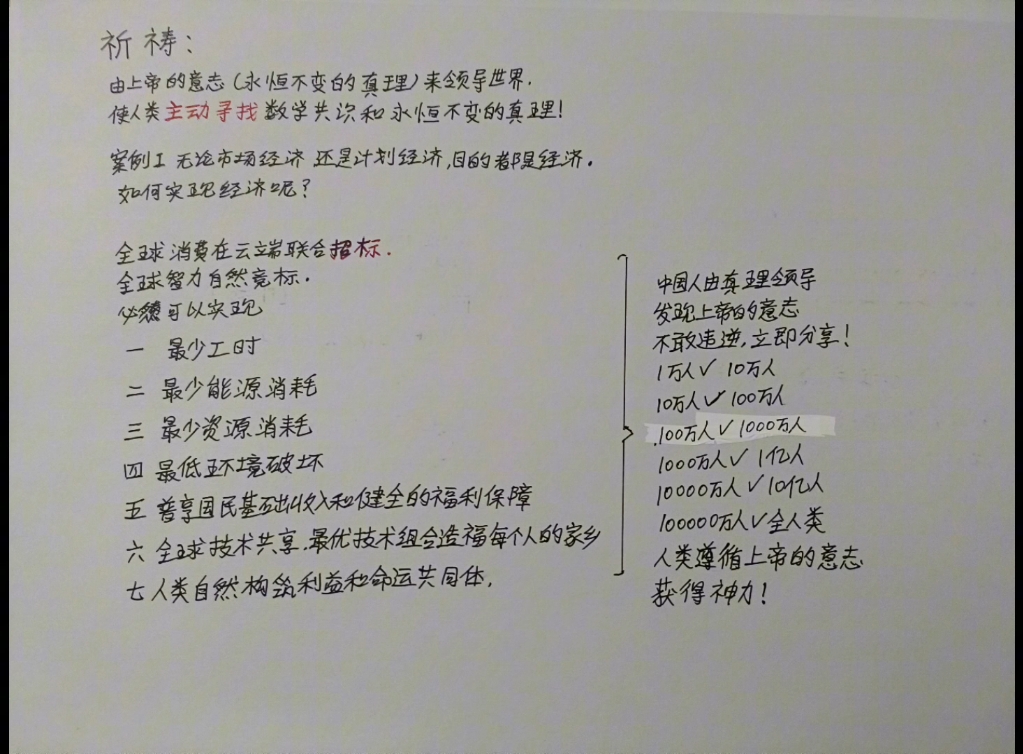 祈祷：
由上帝的意志（永恒不变的真理）来领导世界．
使人类主动寻找数学共识和永恒不变的真理！
案例1 无论市场经济 还是计划经济，目的都是经济．
如何实现经济呢？
全球消费在云端联合招标．
全球智力自然竞标．
必须可以实现
一 最少工时
二 最少能源消耗
三 最少资源消耗
四 最低环境破坏
五 普享国民基础收入和健全的福利保障
六 全球技术共享，最优技术组合造福每个人的家乡
七 人类自然构筑利益和命运共同体．
中国人由真理领导
发现上帝的意志
不敢违逆，立即分享！
1万人✓ 10万人
10万人✓ 100万人
100万人✓ 1000万人
1000万人✓ 1亿人
10000万人✓10亿人
100000万人✓全人类
人类遵循上帝的意志
获得神力！